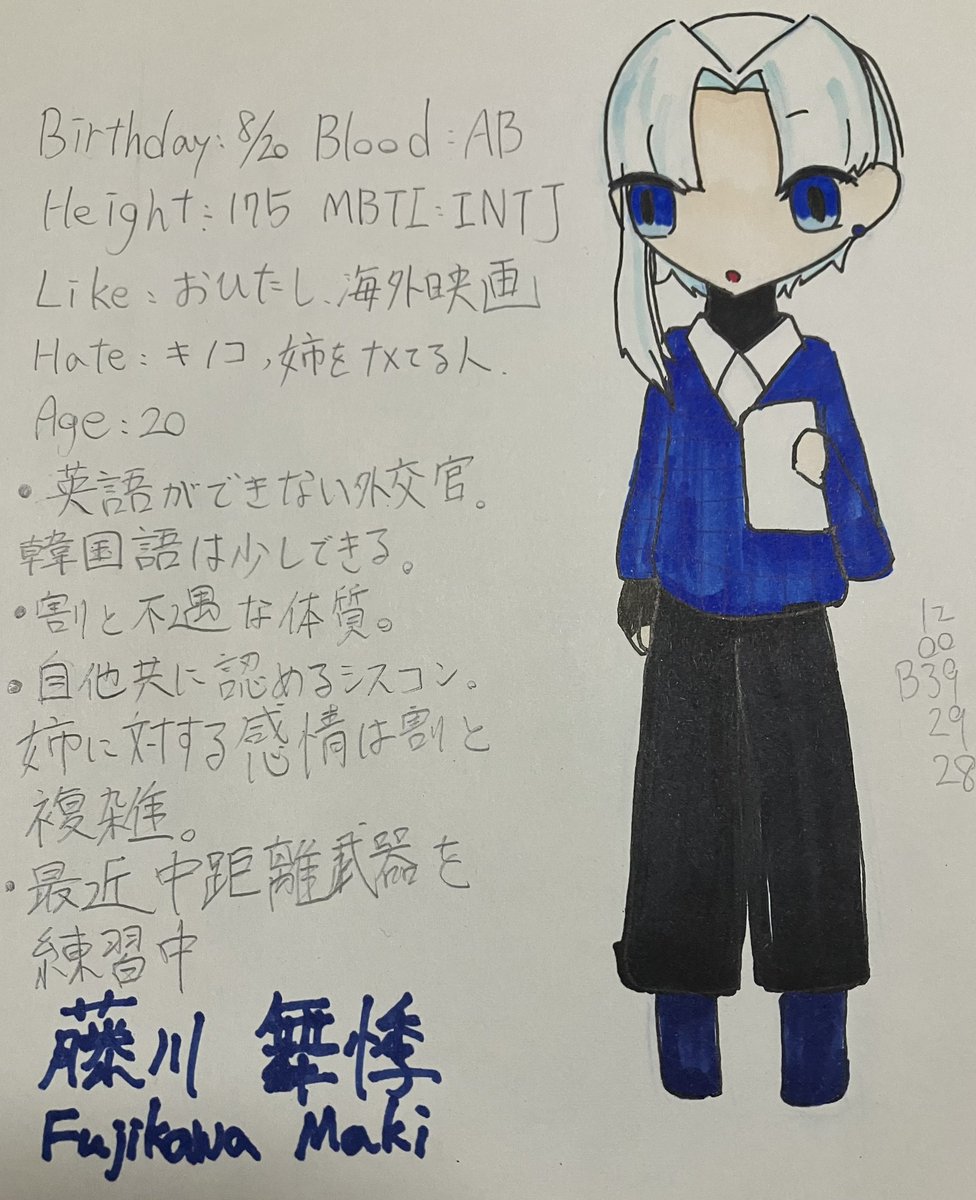 Birthday: 8/20 Blood: AB
Height: 175 MBTI: INTJ
Like: おひたし、海外映画
Hate: キノコ、姉をナメてる人.
Age: 20
・英語ができない外交官。
韓国語は少しできる。
・割と不遇な体質。
・自他共に認めるシスコン。
姉に対する感情は割と
複雑。
・最近中距離武器を
練習中
藤川 舞悸
Fujikawa Maki
12
00
B39
29
28